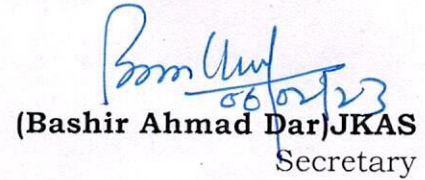 06/02/23
(Bashir Ahmad Dar)JKAS
Secretary